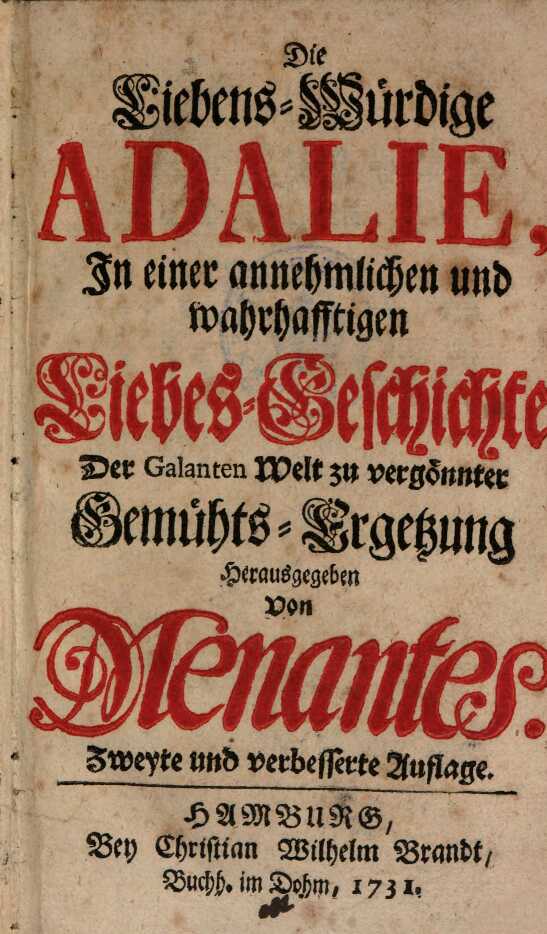 Die
Liebens-Würdige
ADALIE,
In einer annehmlichen und
wahrhafftigen
Liebes-Geschichte
Der Galanten Welt zu vergönnter
Gemühts-Ergetzung
Herausgegeben
von
Menantes.
Zweyte und verbesserte Auflage.
HAMBURG,
Bey Christian Wilhelm Brandt,
Buchh. im Dohm, 1731.